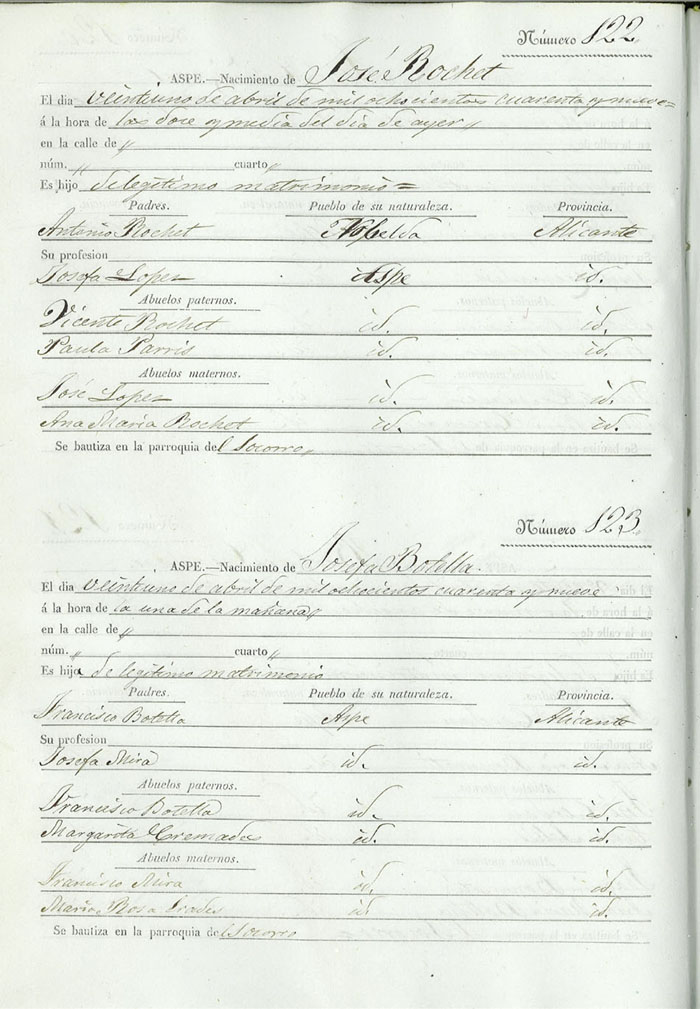 Número 122
ASPE.—Nacimiento de José Rochet
El dia veintiuno de abril de mil ochocientos cuarenta y nueve=
á la hora de las doce y media del dia de ayer„
en la calle de „
núm. „ cuarto „
Es hijo de legitimo matrimonio =
Padres. Pueblo de su naturaleza. Provincia.
Antonio Rochet Nobelda Alicante
Su profesion
Josefa Lopez Aspe id.
Abuelos paternos.
Vicente Rochet id. id.
Paula Parris id. id.
Abuelos maternos.
José Lopez id. id.
Ana Maria Rochet id. id.
Se bautiza en la parroquia del Socorro„
Número 123
ASPE.—Nacimiento de Josefa Botella.
El dia veintiuno de abril de mil ochocientos cuarenta y nueve
á la hora de la una de la mañana„
en la calle de „
núm. „ cuarto „
Es hija de legitimo matrimonio
Padres. Pueblo de su naturaleza. Provincia.
Francisco Botella Aspe Alicante
Su profesion
Josefa Mira id. id.
Abuelos paternos.
Francisco Botella id. id.
Margarita Cremades id. id.
Abuelos maternos.
Francisco Mira id. id.
Maria Rosa Prades id. id.
Se bautiza en la parroquia del Socorro